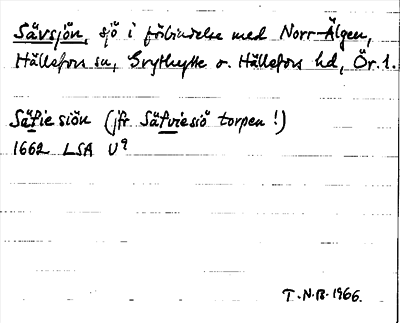 Sävsjön, sjö i förbindelse med Norr-Älgen,
Hällefors sn, Grythytte o. Hällefors hd, Ör. l.
Säfie siön (jfr Säfviesiö torpen!)
1662 LSA U9
T.N.B. 1966.